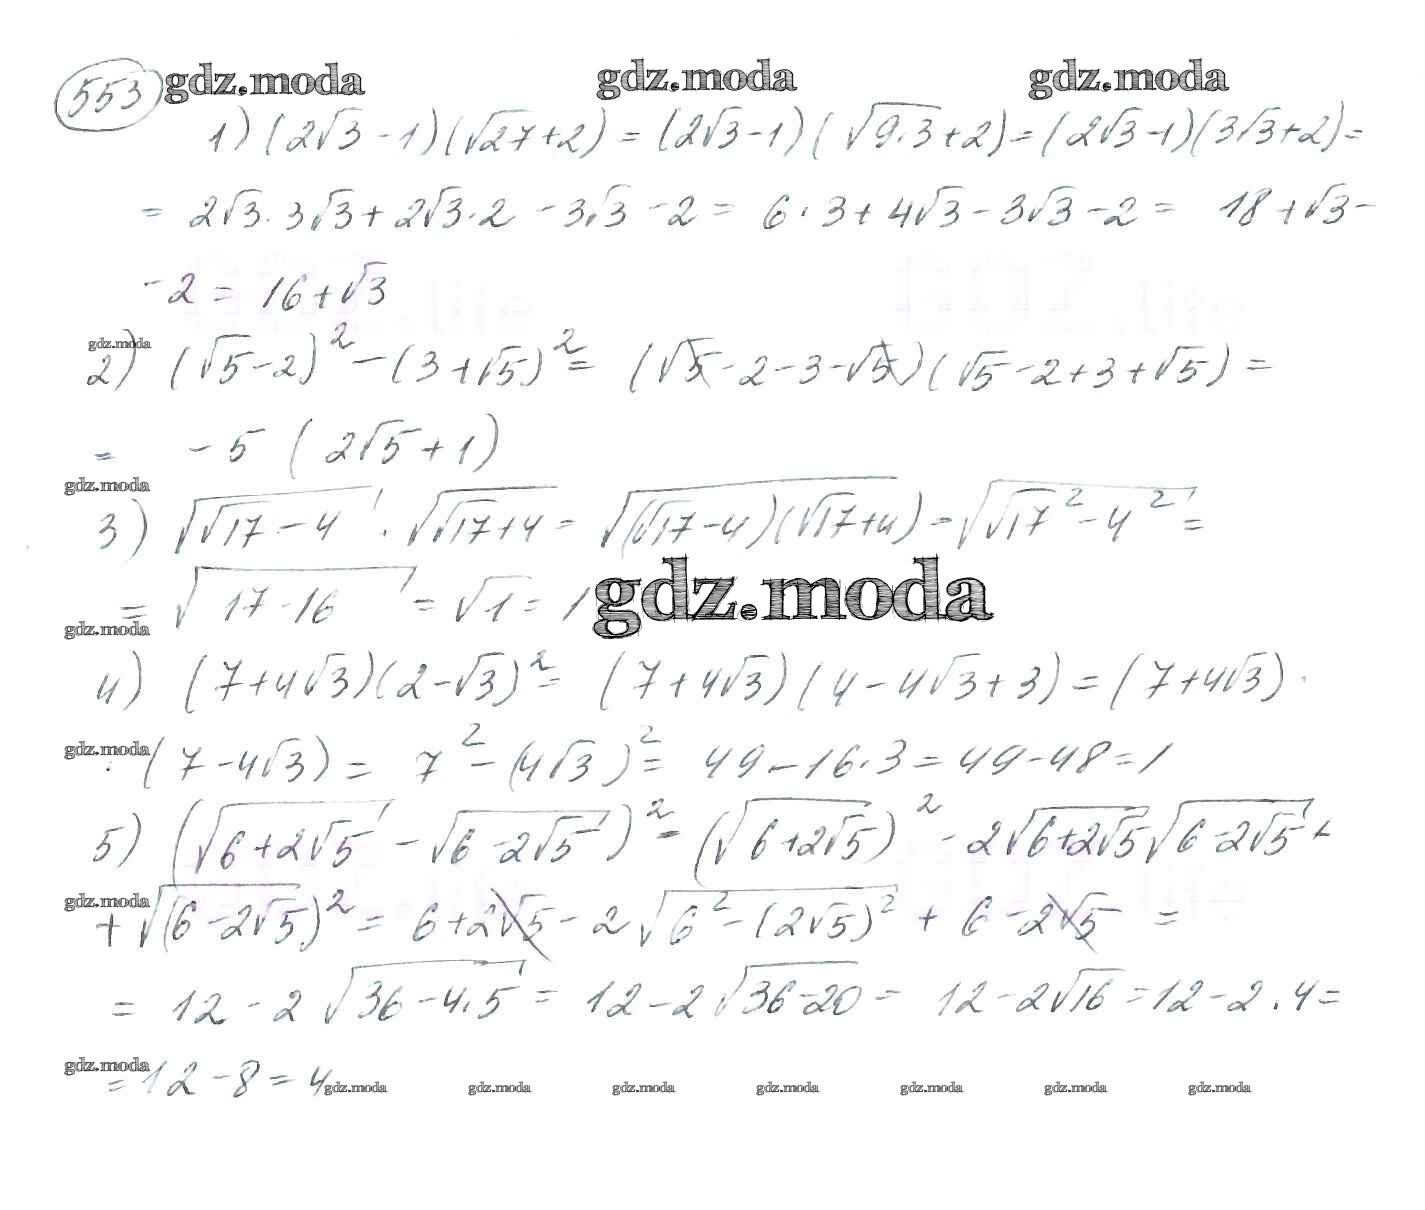 553 gdz.moda gdz.moda gdz.moda
1) (2√3 - 1)(√27 + 2) = (2√3 - 1)(√9·3 + 2) = (2√3 - 1)(3√3 + 2) =
= 2√3 · 3√3 + 2√3 · 2 - 3√3 - 2 = 6 · 3 + 4√3 - 3√3 - 2 = 18 + √3 -
- 2 = 16 + √3
gdz.moda
2) (√5 - 2)² - (3 + √5)² = (√5 - 2 - 3 - √5)(√5 - 2 + 3 + √5) =
= - 5 (2√5 + 1)
gdz.moda
3) √(√17 - 4) · √(√17 + 4) = √((√17 - 4)(√17 + 4)) = √(√17² - 4²) =
= √(17 - 16) = √1 = 1
gdz.moda
gdz.moda
4) (7 + 4√3)(2 - √3)² = (7 + 4√3)(4 - 4√3 + 3) = (7 + 4√3) ·
gdz.moda
· (7 - 4√3) = 7² - (4√3)² = 49 - 16 · 3 = 49 - 48 = 1
5) (√(6 + 2√5) - √(6 - 2√5))² = (√(6 + 2√5))² - 2√(6 + 2√5)√(6 - 2√5) +
gdz.moda
+ √(6 - 2√5)² = 6 + 2√5 - 2√(6² - (2√5)²) + 6 - 2√5 =
= 12 - 2√(36 - 4·5) = 12 - 2√(36 - 20) = 12 - 2√16 = 12 - 2 · 4 =
gdz.moda
= 12 - 8 = 4
gdz.moda gdz.moda gdz.moda gdz.moda gdz.moda gdz.moda gdz.moda